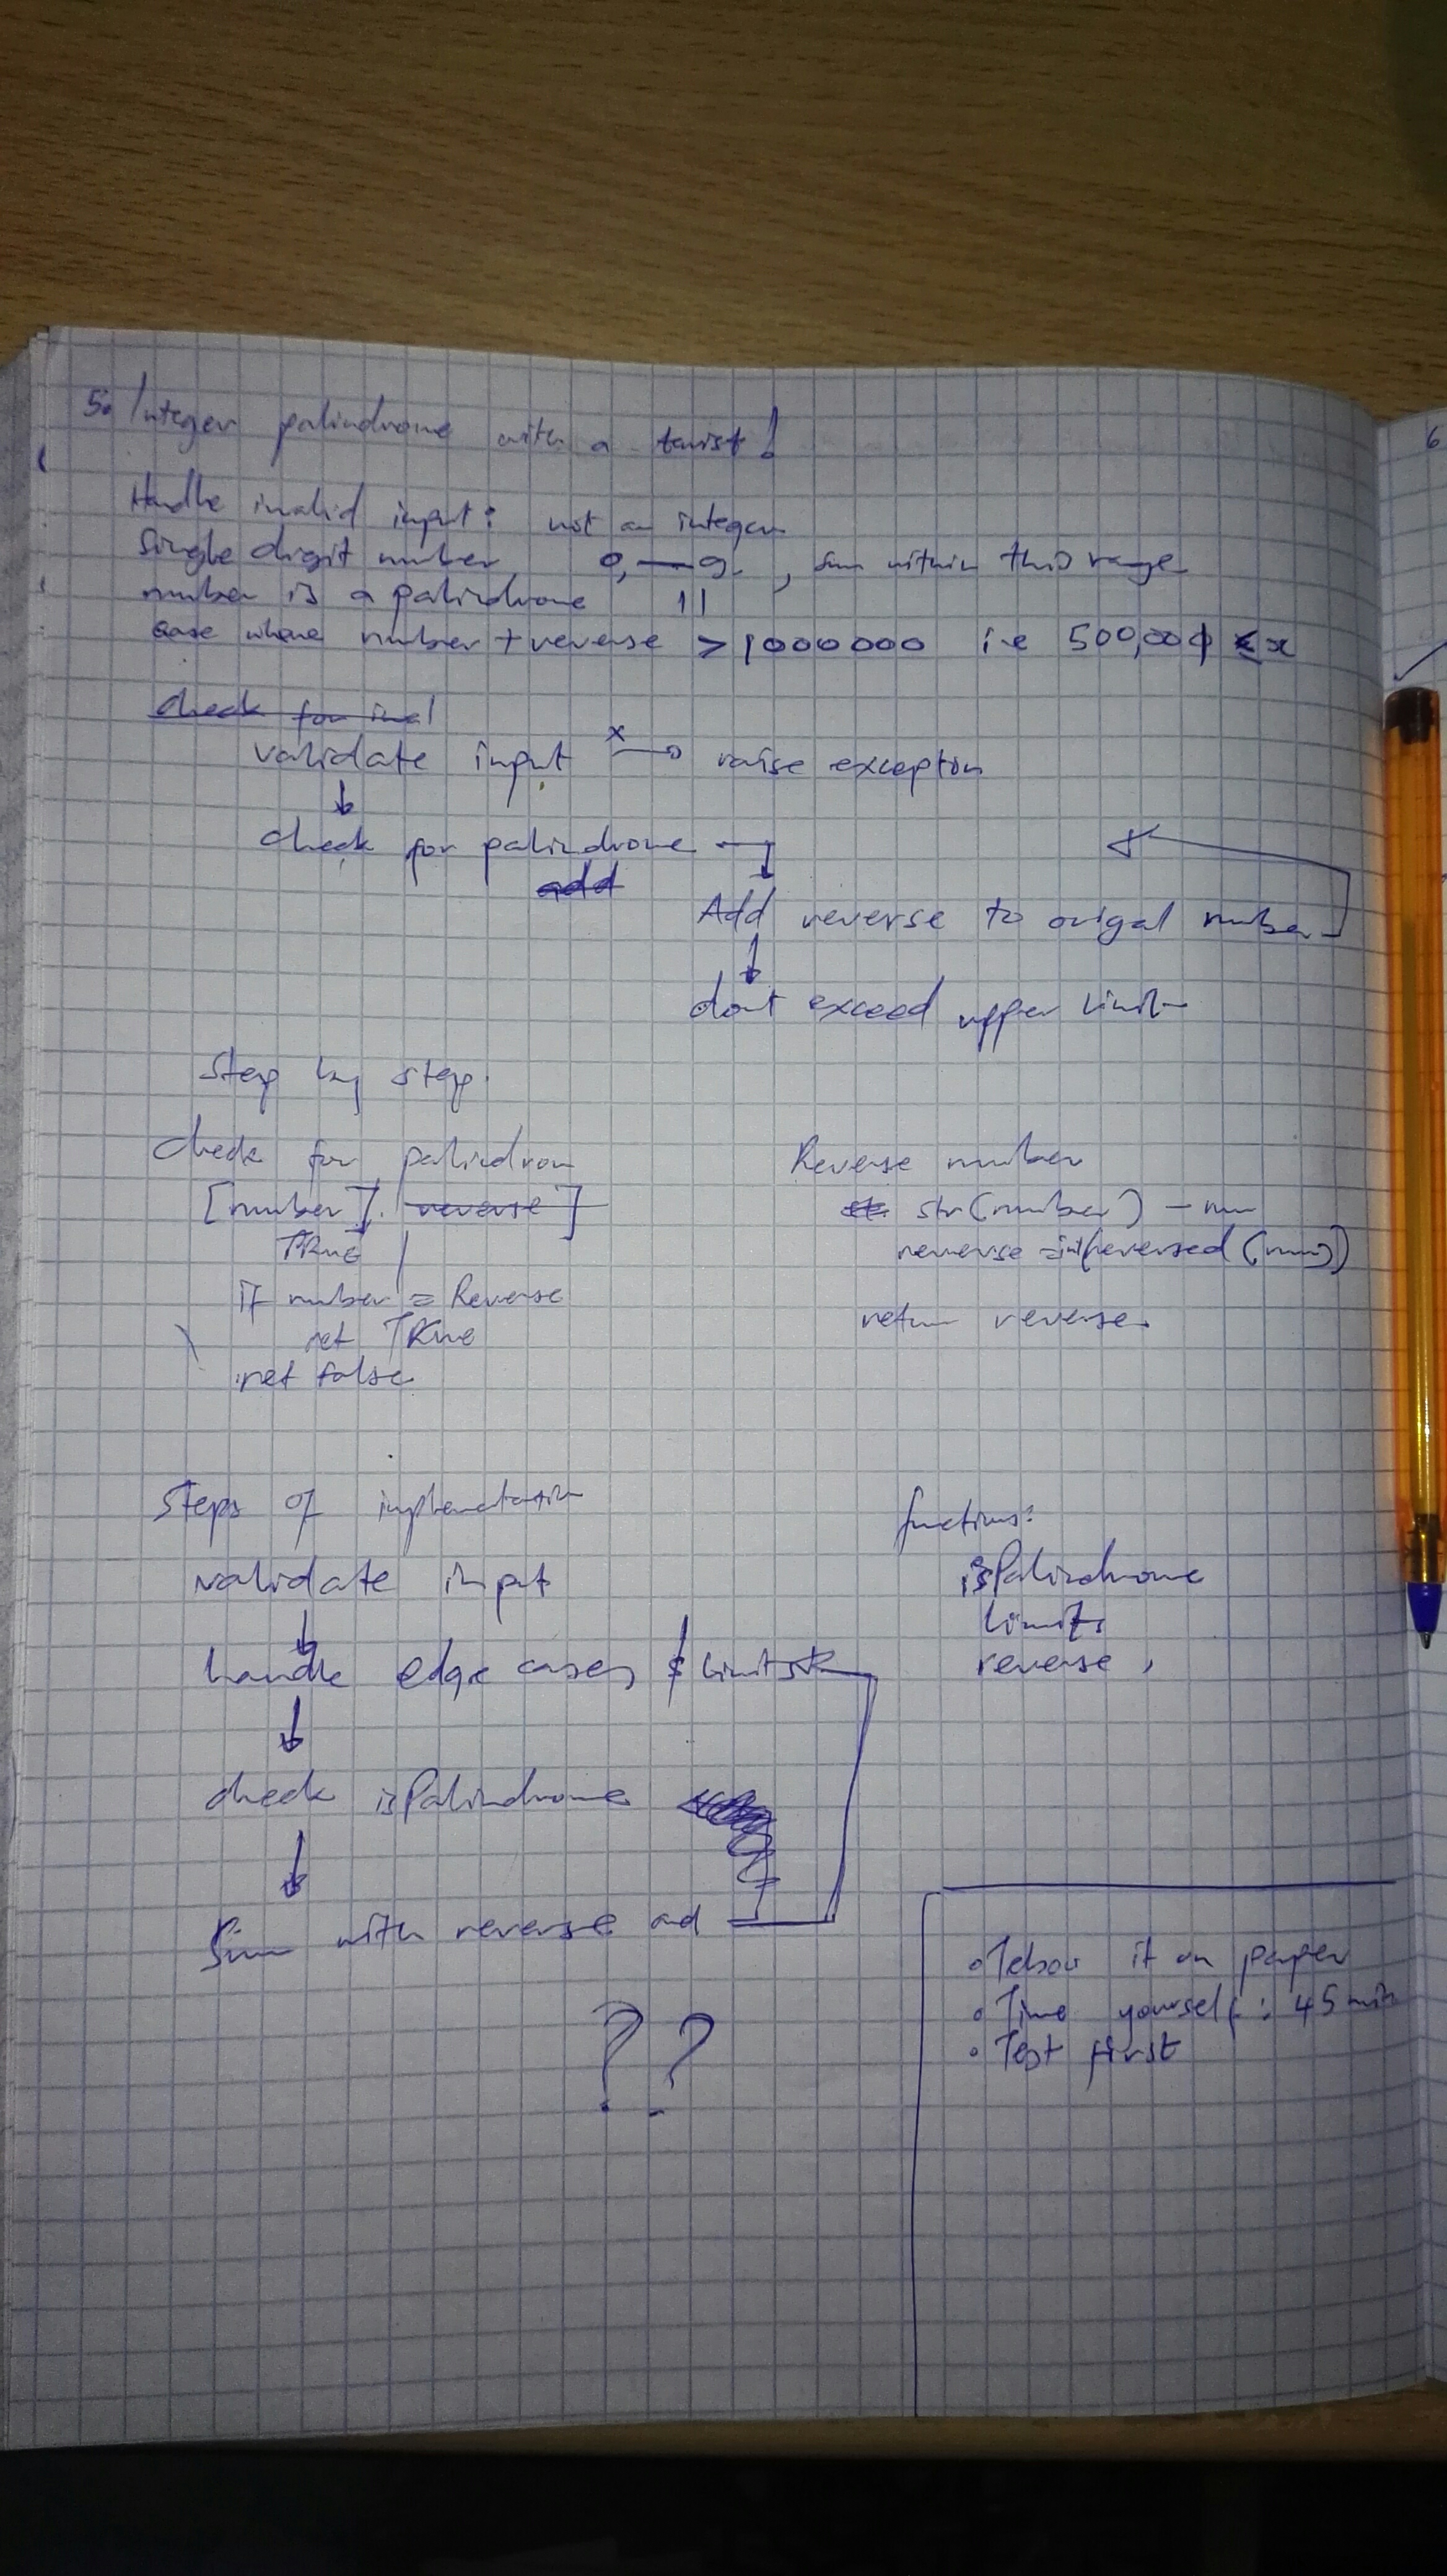 5. Integer palindrome with a twist!
Handle invalid input: not an integer
Single digit number 0, — 9 , sum within this range
number is a palindrome 11
case where number + reverse > 1000000 i.e 500,001 < x
validate input x → raise exception
check for palindrome
add
Add reverse to origal number
dont exceed upper limit
Step by step.
check for palindrom
[number]. reverse]
TRue
if number = Reverse
ret TRue
ret false
Reverse number
str(number) - num
reverse = int(reversed(num))
return reverse
Steps of implementation
validate input
handle edge cases & limits
check isPalindrome
Sum with reverse and
? ?
functions:
isPalindrome
limits
reverse,
it on paper
Time yourself : 45 min
Test first
6